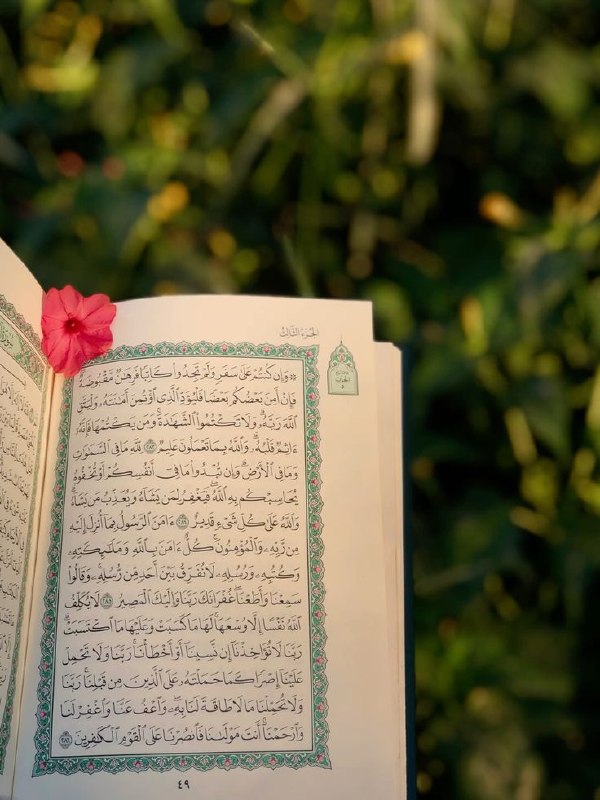 الجزء الثالث
۞ وَإِن كُنتُمْ عَلَىٰ سَفَرٍ وَلَمْ تَجِدُوا۟ كَاتِبًا فَرِهَٰنٌ مَّقْبُوضَةٌ
فَإِنْ أَمِنَ بَعْضُكُم بَعْضًا فَلْيُؤَدِّ ٱلَّذِى ٱؤْتُمِنَ أَمَٰنَتَهُۥ وَلْيَتَّقِ
ٱللَّهَ رَبَّهُۥ وَلَا تَكْتُمُوا۟ ٱلشَّهَٰدَةَ وَمَن يَكْتُمْهَا فَإِنَّهُۥٓ
ءَاثِمٌ قَلْبُهُۥ وَٱللَّهُ بِمَا تَعْمَلُونَ عَلِيمٌ ٢٨٣ لِّلَّهِ مَا فِى ٱلسَّمَٰوَٰتِ
وَمَا فِى ٱلْأَرْضِ وَإِن تُبْدُوا۟ مَا فِىٓ أَنفُسِكُمْ أَوْ تُخْفُوهُ
يُحَاسِبْكُم بِهِ ٱللَّهُ فَيَغْفِرُ لِمَن يَشَآءُ وَيُعَذِّبُ مَن يَشَآءُ
وَٱللَّهُ عَلَىٰ كُلِّ شَىْءٍ قَدِيرٌ ٢٨٤ ءَامَنَ ٱلرَّسُولُ بِمَآ أُنزِلَ إِلَيْهِ
مِن رَّبِّهِۦ وَٱلْمُؤْمِنُونَ كُلٌّ ءَامَنَ بِٱللَّهِ وَمَلَٰٓئِكَتِهِۦ
وَكُتُبِهِۦ وَرُسُلِهِۦ لَا نُفَرِّقُ بَيْنَ أَحَدٍ مِّن رُّسُلِهِۦ وَقَالُوا۟
سَمِعْنَا وَأَطَعْنَا غُفْرَانَكَ رَبَّنَا وَإِلَيْكَ ٱلْمَصِيرُ ٢٨٥ لَا يُكَلِّفُ
ٱللَّهُ نَفْسًا إِلَّا وُسْعَهَا لَهَا مَا كَسَبَتْ وَعَلَيْهَا مَا ٱكْتَسَبَتْ
رَبَّنَا لَا تُؤَاخِذْنَآ إِن نَّسِينَآ أَوْ أَخْطَأْنَا رَبَّنَا وَلَا تَحْمِلْ
عَلَيْنَآ إِصْرًا كَمَا حَمَلْتَهُۥ عَلَى ٱلَّذِينَ مِن قَبْلِنَا رَبَّنَا
وَلَا تُحَمِّلْنَا مَا لَا طَاقَةَ لَنَا بِهِۦ وَٱعْفُ عَنَّا وَٱغْفِرْ لَنَا
وَٱرْحَمْنَآ أَنتَ مَوْلَىٰنَا فَٱنصُرْنَا عَلَى ٱلْقَوْمِ ٱلْكَٰفِرِينَ ٢٨٦
٤٩